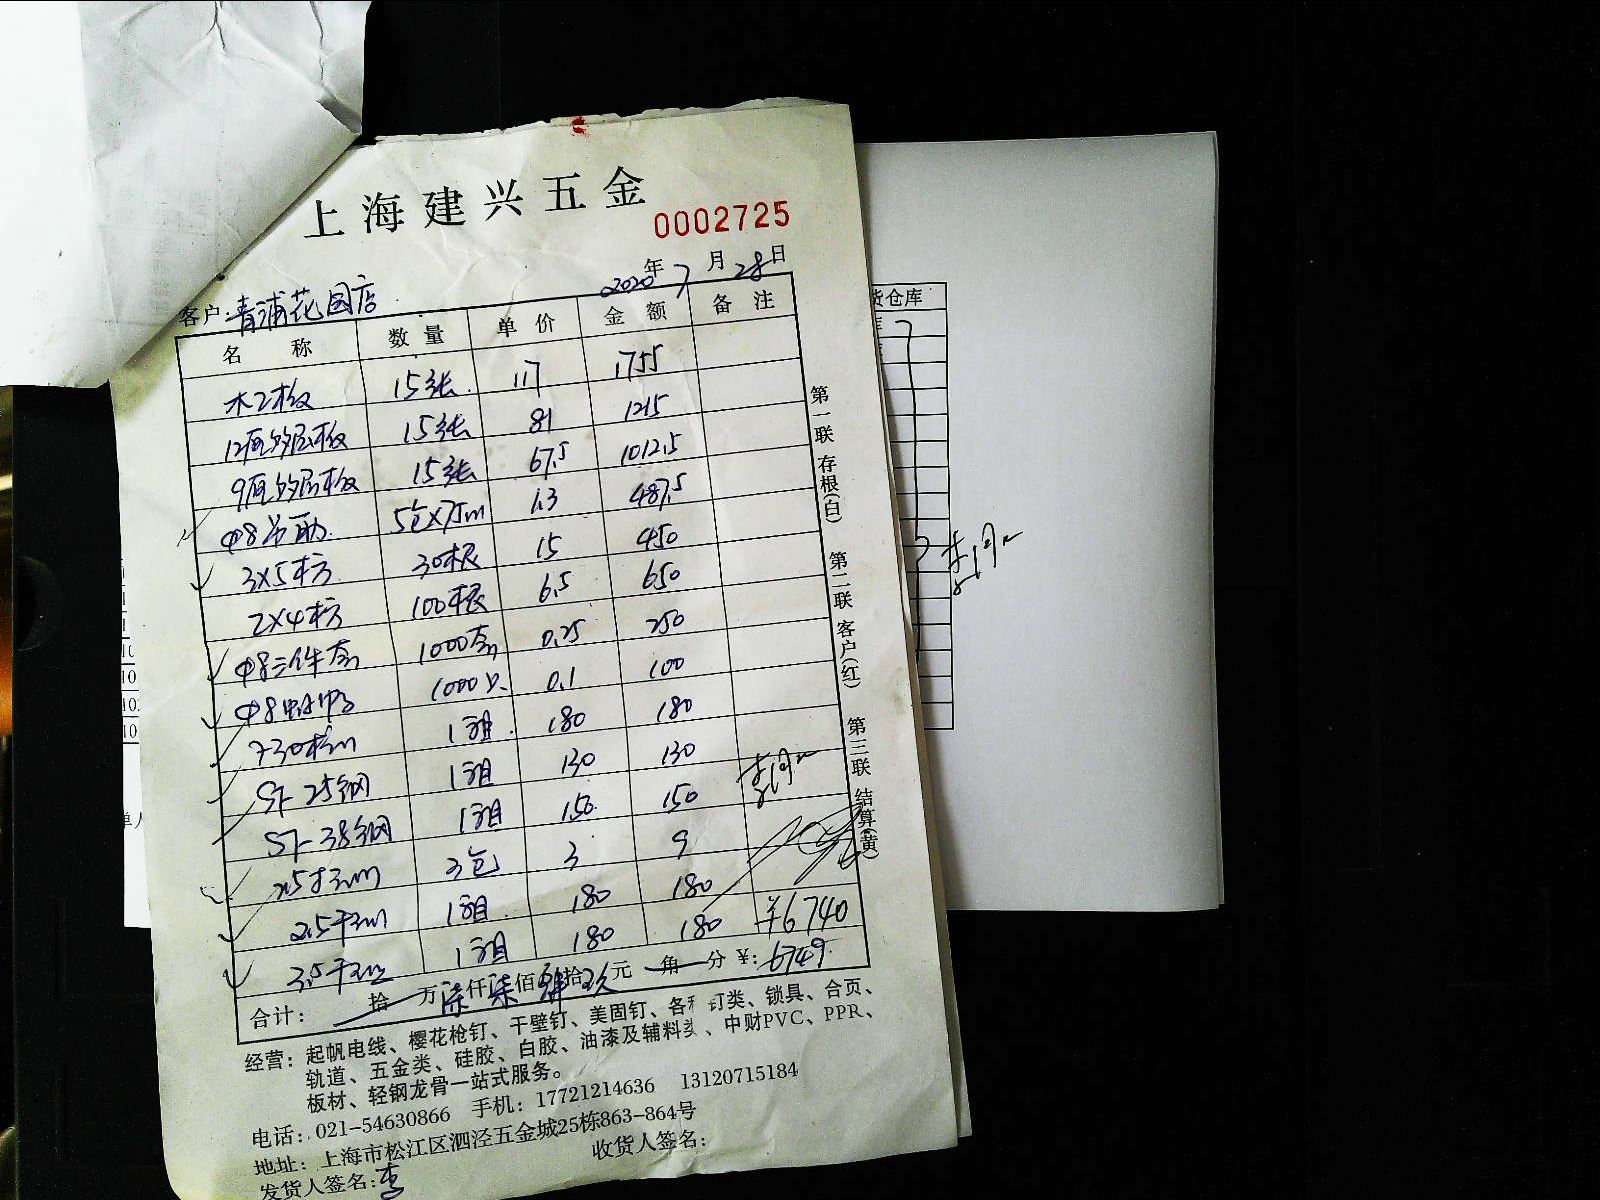 上海建兴五金
0002725
2020年7月28日
客户:青浦花园店
名称 数量 单价 金额 备注
木工板 15张 117 1755
12厘多层板 15张 81 1215
9厘多层板 15张 67.5 1012.5
φ8吊 5包×75m 1.3 487.5
3×5木方 30根 15 450
2×4木方 100根 6.5 650
φ8三件套 1000套 0.25 250
φ8 1000只 0.1 100
F30 1箱 180 180
ST-25钢 1箱 130 130
ST-38钢 1箱 150 150
3包 3 9
2.5干 1箱 180 180
3.5干 1箱 180 180
¥6740
合计: 拾 万 仟 柒佰 肆拾 玖元 角 分 ¥:6749
经营:起帆电线、樱花枪钉、干壁钉、美固钉、各种钉类、锁具、合页、
轨道、五金类、硅胶、白胶、油漆及辅料类、中财PVC、PPR、
板材、轻钢龙骨一站式服务。
电话:021-54630866 手机:17721214636 13120715184
地址:上海市松江区泗泾五金城25栋863-864号
发货人签名:李 收货人签名:
第一联 存根(白) 第二联 客户(红) 第三联 结算(黄)
货仓库
库
单人